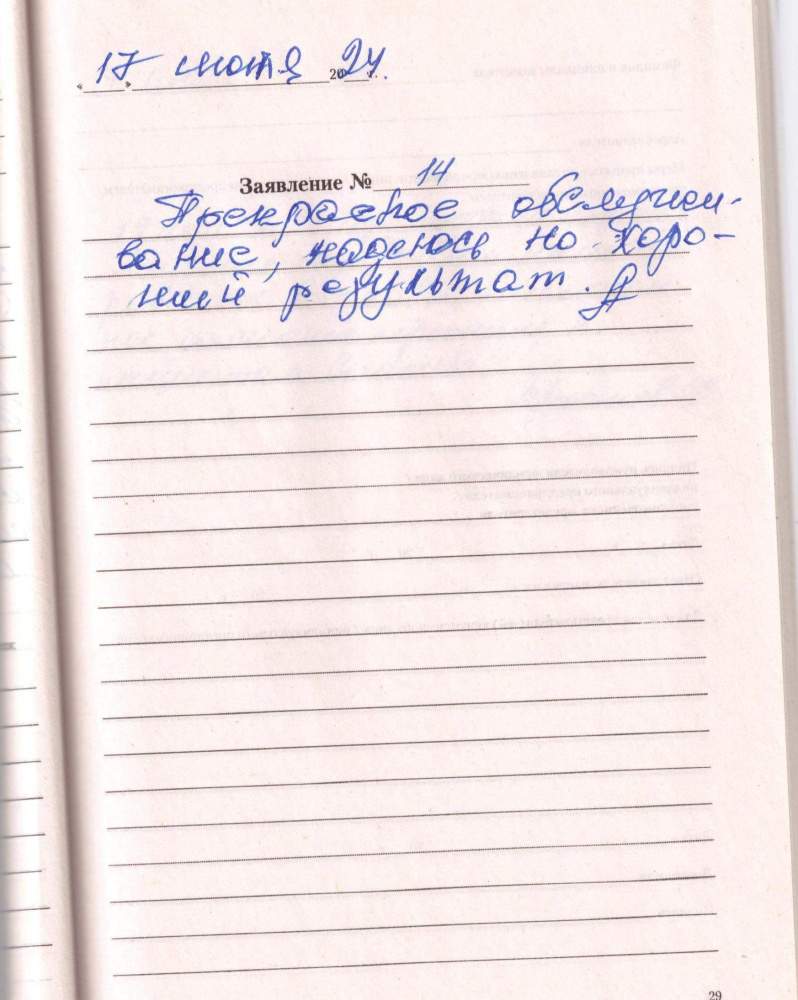 « 17 » июля 2024 г.
Заявление № 14
Прекрасное обслужи-
вание, надеюсь на хоро-
ший результат.
29